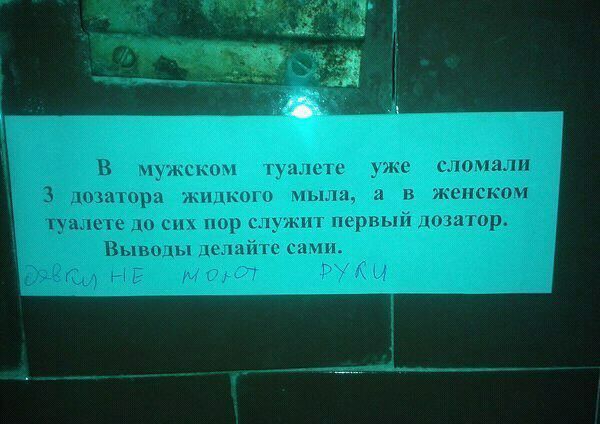 В мужском туалете уже сломали
3 дозатора жидкого мыла, а в женском
туалете до сих пор служит первый дозатор.
Выводы делайте сами.
дэвки НЕ моют РУКИ